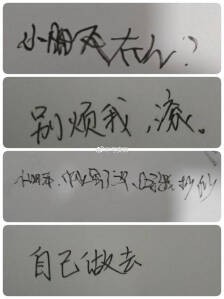 小朋友在么?
别烦我,滚。
小朋友,作业写了吗,
自己做去